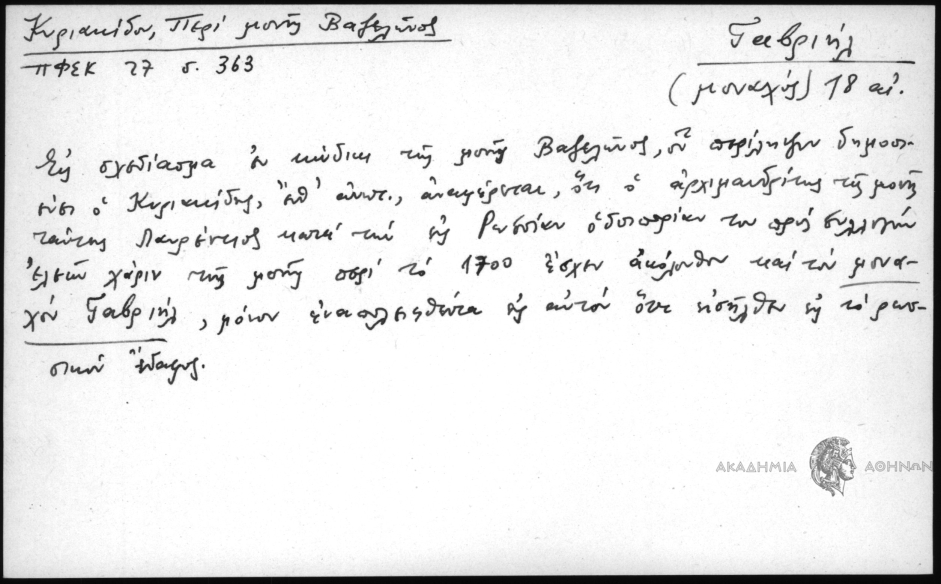 Κυριακίδου, Περί μονής Βαζελῶνος
ΠΦΣΚ 27 σ. 363
Γαβριήλ
(μοναχός) 18 αἰ.
Εἰς σχεδίασμα ἐν κώδικι τῆς μονῆς Βαζελῶνος, οὗ περίληψιν δημοσι-
εύει ὁ Κυριακίδης, ἔνθ' ἀνωτ., ἀναφέρεται, ὅτι ὁ ἀρχιμανδρίτης τῆς μονῆς
ταύτης Λαυρέντιος κατά τήν εἰς Ρωσσίαν ὁδοιπορίαν του πρός συλλογήν
ἐλεῶν χάριν τῆς μονῆς περί τό 1700 ἔσχεν ἀκόλουθον καί τόν μονα-
χόν Γαβριήλ, μόνον ἐναπολειφθέντα εἰς αὐτόν ὅτε εἰσῆλθεν εἰς τό ρωσ-
σικόν ἔδαφος.
ΑΚΑΔΗΜΙΑ ΑΘΗΝΩΝ